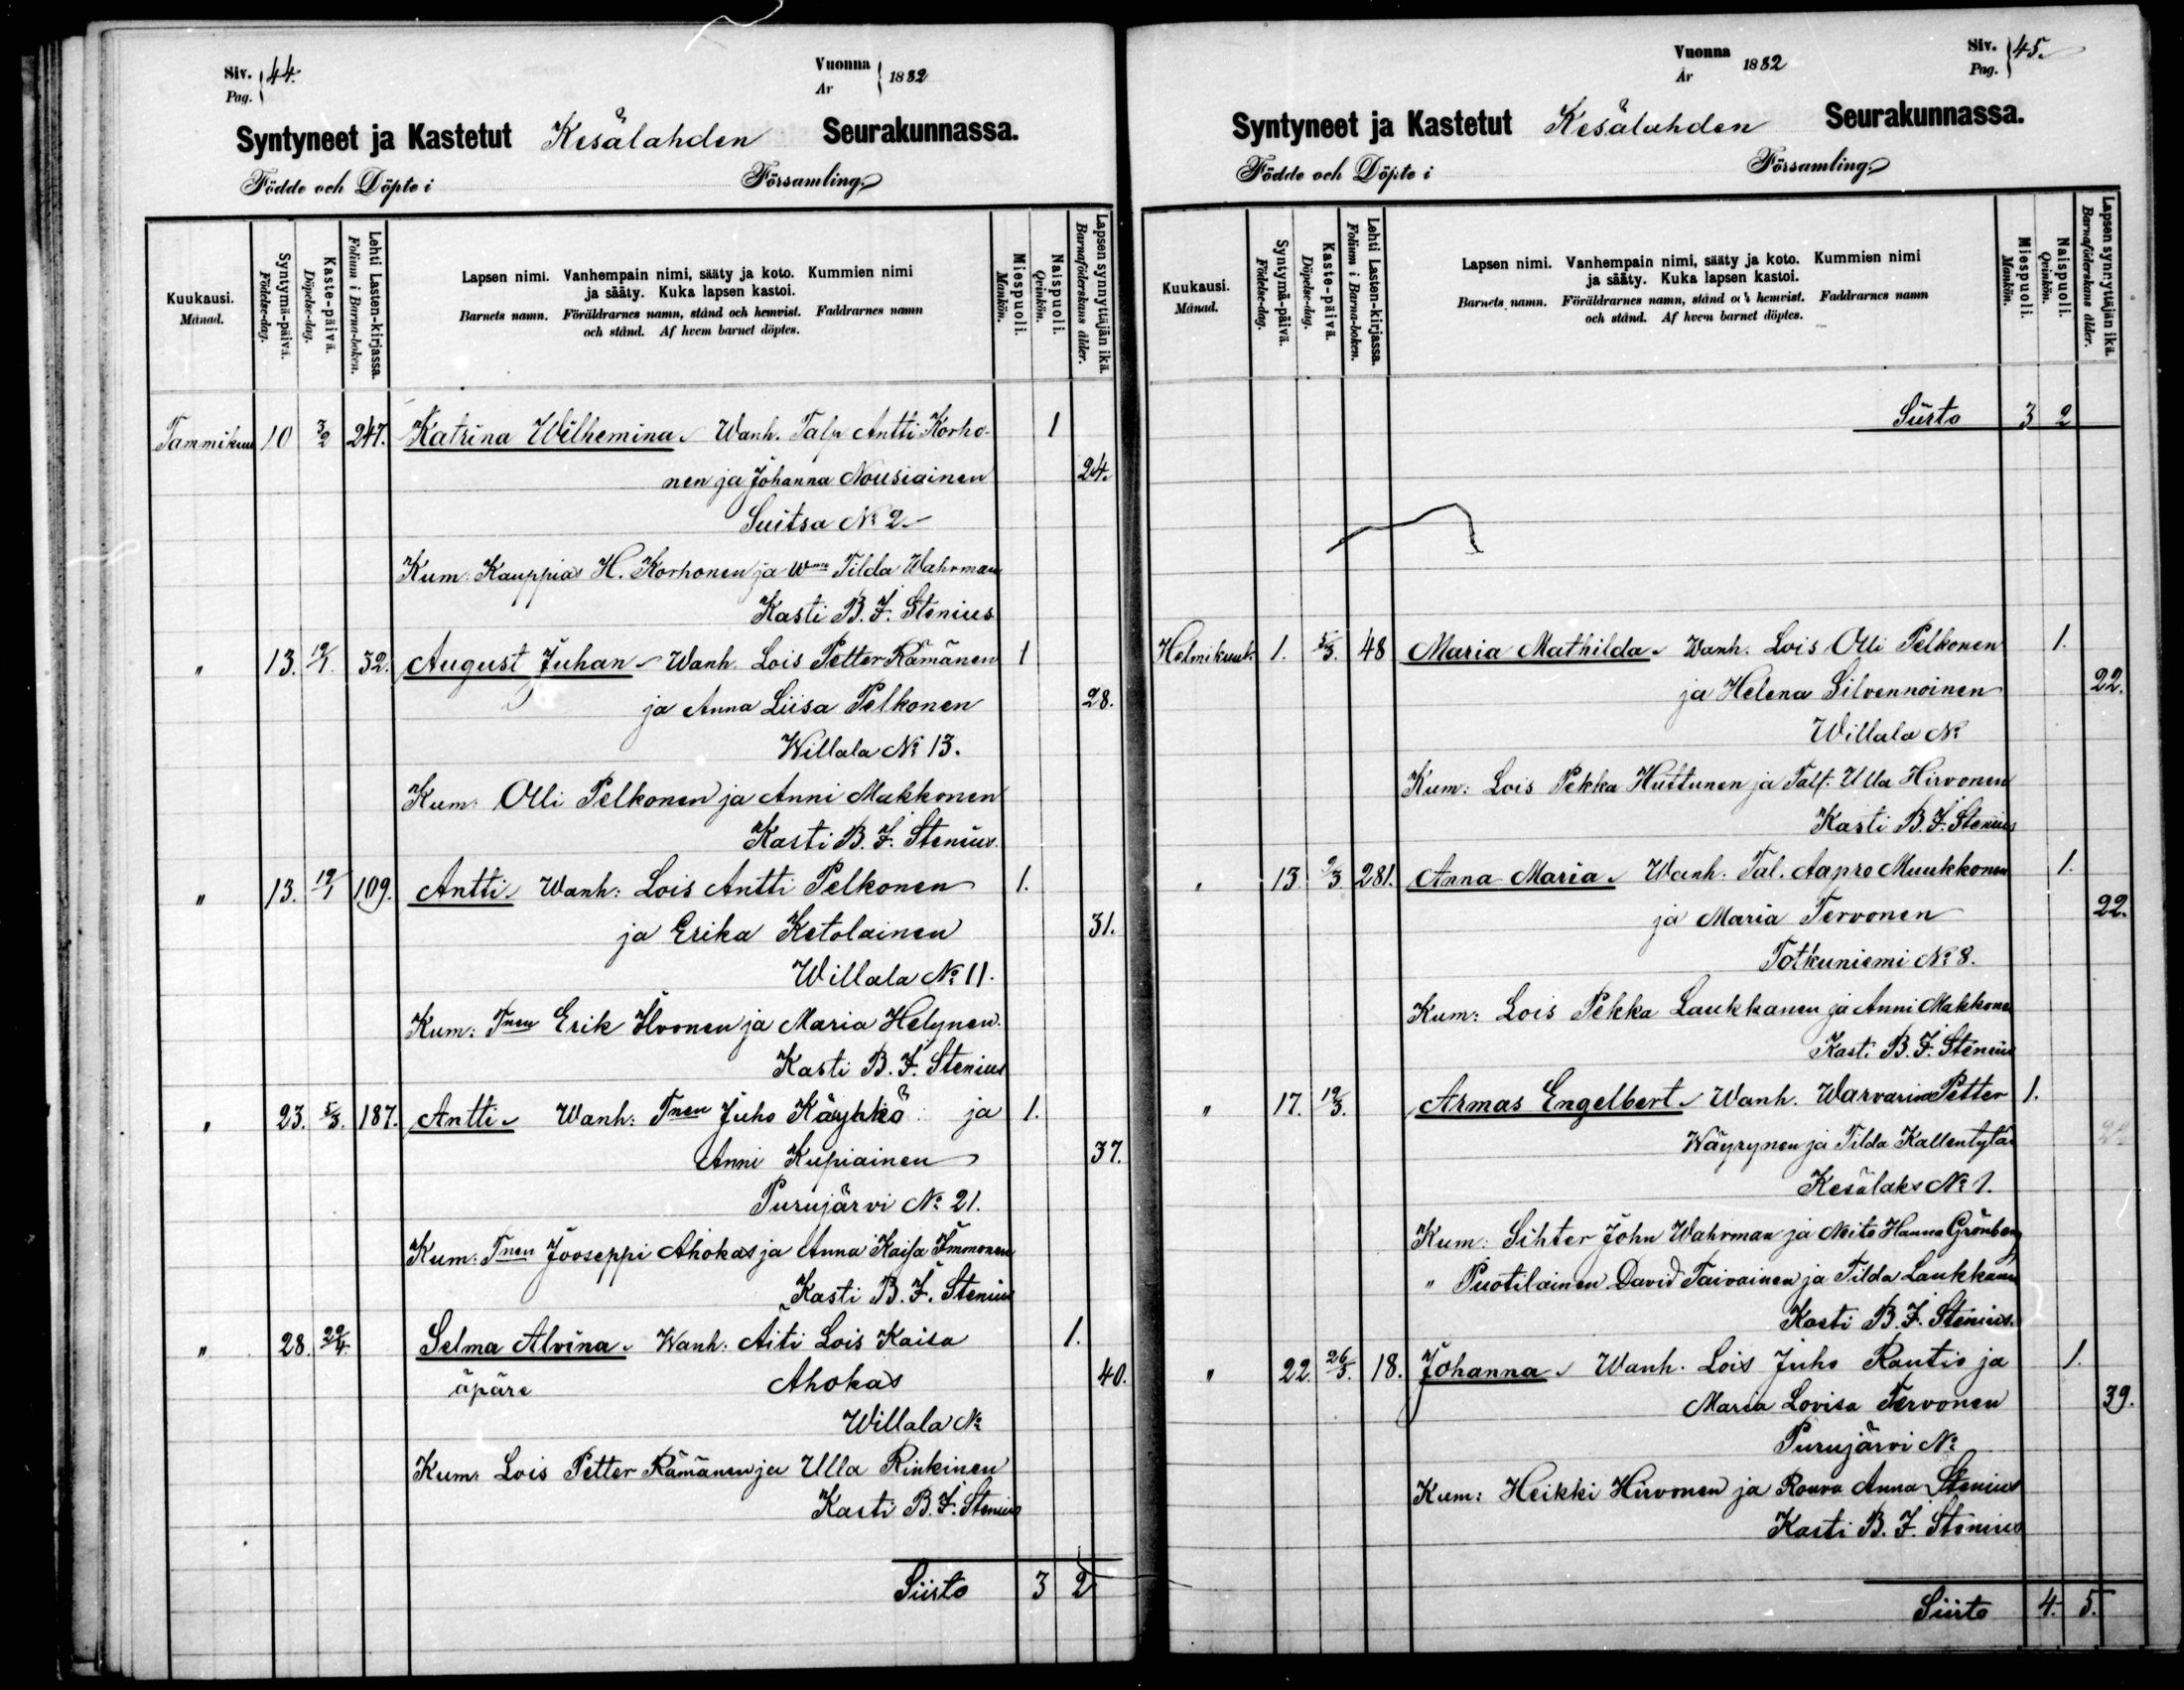 Siv. Pag. 44.
Vuonna År 1882
Syntyneet ja Kastetut Kesälahden Seurakunnassa.
Födde och Döpte i Församling.
Kuukausi. Månad.
Syntymä-päivä. Födelse-dag.
Kaste-päivä. Döpelse-dag.
Lehti Lasten-kirjassa. Folium i Barna-boken.
Lapsen nimi. Vanhempain nimi, sääty ja koto. Kummien nimi
ja sääty. Kuka lapsen kastoi.
Barnets namn. Föräldrarnes namn, stånd och hemvist. Faddrarnes namn
och stånd. Af hvem barnet döptes.
Miespuoli. Mankön.
Naispuoli. Qvinkön.
Lapsen synnyttäjän ikä. Barnaföderskans ålder.
Tammikuu 10 3/2 247. Katrina Wilhemina. Wanh. Talp Antti Korho- 1
nen ja Johanna Nousiainen 24.
Suitsa № 2.
Kum: Kauppias H. Korhonen ja Tilda Wahrman
Kasti B. F. Stenius
" 13. 19/1. 32. August Juhan Wanh. Lois Petter Rämänen 1
ja Anna Liisa Pelkonen 28.
Willala № 13.
Kum: Olli Pelkonen ja Anni Makkonen
Kasti B. F. Stenius.
" 13. 19/1 109. Antti Wanh: Lois Antti Pelkonen 1.
ja Erika Ketolainen 31.
Willala № 11.
Kum: Tnen Erik Ilvonen ja Maria Helynen.
Kasti B. F. Stenius
" 23. 5/3. 187. Antti Wanh: Tnen Juho Käyhkö ja 1.
Anni Kupiainen 37.
Purujärvi № 21.
Kum: Tnen Jooseppi Ahokas ja Anna Kaisa Immonen
Kasti B. F. Stenius
" 28. 22/4. Selma Alvina. Wanh: Äiti Lois Kaisa 1.
äpäre Ahokas 40.
Willala №
Kum: Lois Petter Rämänen ja Ulla Rinkinen
Kasti B. F. Stenius
Siirto 3 2
Vuonna År 1882
Siv. Pag. 45.
Syntyneet ja Kastetut Kesälahden Seurakunnassa.
Födde och Döpte i Församling.
Kuukausi. Månad.
Syntymä-päivä. Födelse-dag.
Kaste-päivä. Döpelse-dag.
Lehti Lasten-kirjassa. Folium i Barna-boken.
Lapsen nimi. Vanhempain nimi, sääty ja koto. Kummien nimi
ja sääty. Kuka lapsen kastoi.
Barnets namn. Föräldrarnes namn, stånd och hemvist. Faddrarnes namn
och stånd. Af hvem barnet döptes.
Miespuoli. Mankön.
Naispuoli. Qvinkön.
Lapsen synnyttäjän ikä. Barnaföderskans ålder.
Siirto 3 2
Helmikuuk. 1. 5/3. 48 Maria Mathilda. Wanh. Lois Olli Pelkonen 1.
ja Helena Silvennoinen 22.
Willala №
Kum: Lois Pekka Huttunen ja Talt. Ulla Hirvonen
Kasti B. F. Stenius
" 13 9/3 281. Anna Maria. Wanh. Tal. Aapro Muukkonen 1.
ja Maria Tervonen 22.
Totkuniemi № 8.
Kum: Lois Pekka Laukkanen ja Anni Makkonen
Kasti B. F. Stenius
" 17. 19/3. Armas Engelbert. Wanh. Warvarin Petter 1.
Wäyrynen ja Tilda Kallentytär
Kesälaks № 1.
Kum: Sihter John Wahrman ja Neito Hanna Grönberg
" Puotilainen David Taivainen ja Tilda Laukkanen
Kasti B. F. Stenius.
" 22. 26/3. 18. Johanna Wanh. Lois Juho Rautio ja 1.
Maria Lovisa Tervonen 39.
Purujärvi №
Kum: Heikki Hirvonen ja Rouva Anna Stenius
Kasti B. F. Stenius
Siirto 4. 5.